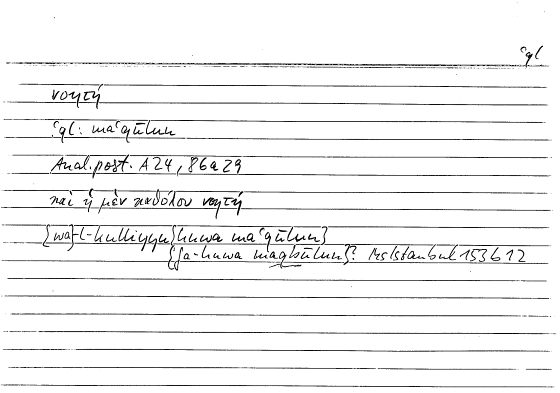 ʿql
νοητή
ʿql: maʿqūlun
Anal. post. A 24, 86a29
καὶ ἡ μὲν καθόλου νοητή
{wa}-l-kulliyyu {huwa maʿqūlun}
{fa-huwa maqbūlun}? Ms Istanbul 153b12